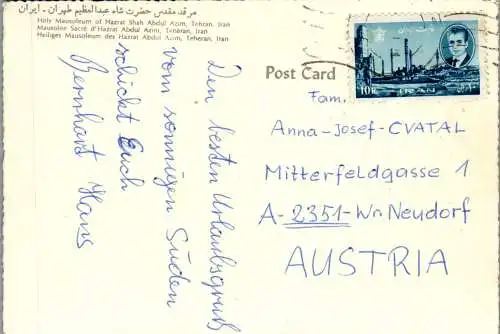 مرقد مقدس حضرت شاه عبدالعظیم طهران - ایران
Holy Mausoleum of Hazrat Shah Abdul Azim, Tehran, Iran
Mausolée Sacré d'Hazrat Abdul Azim, Téhéran, Iran
Heiliges Mausoleum des Hazrat Abdul Azim, Teheran, Iran
Den besten Urlaubsgruß
vom sonnigen Süden
schickt Euch
Bernhart Hans
Post Card
10R
IRAN
Fam.
Anna-Josef-CVATAL
Mitterfeldgasse 1
A-2351-Wn Neudorf
AUSTRIA